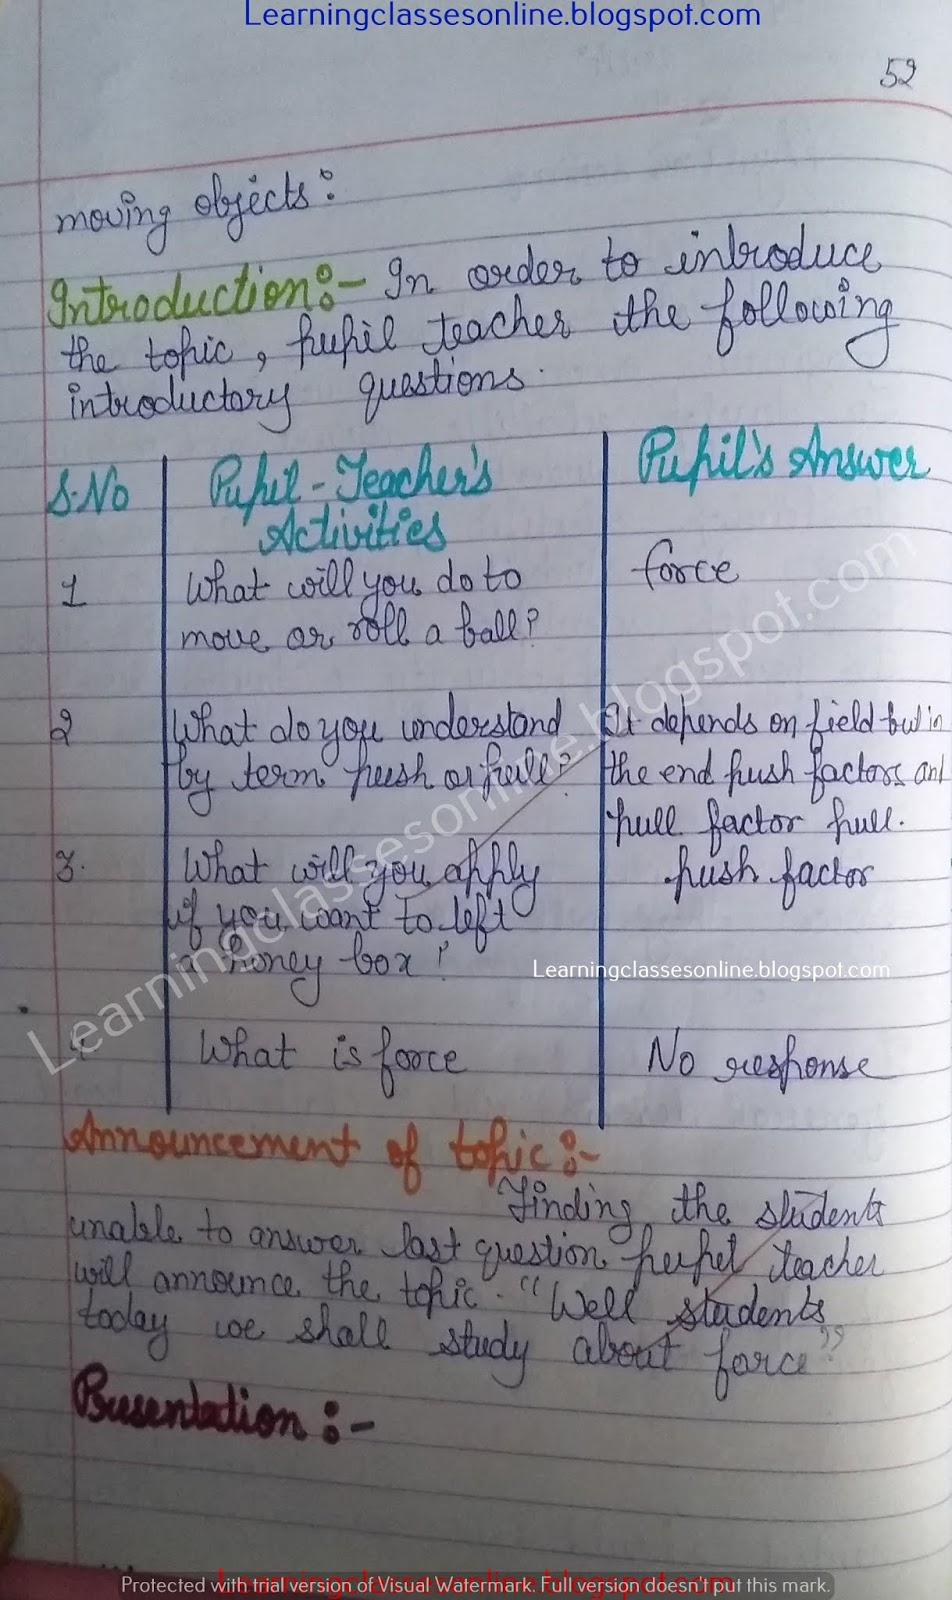 Learningclassesonline.blogspot.com
52
moving objects:
Introduction:- In order to introduce
the topic, pupil teacher the following
introductory questions.
S.No Pupil-Teacher's Pupil's Answer
Activities
1 What will you do to force
move or roll a ball?
2 What do you understand It depends on field but in
by term push or pull? the end push factors and
pull factor pull.
3. What will you apply push factor
if you want to left
a honey box?
4 What is force No response
Announcement of topic:-
Finding the students
unable to answer last question pupil teacher
will announce the topic. "Well students
today we shall study about force"
Presentation:-
Learningclassesonline.blogspot.com
Learningclassesonline.blogspot.com
Protected with trial version of Visual Watermark. Full version doesn't put this mark.
Learningclassesonline.blogspot.com